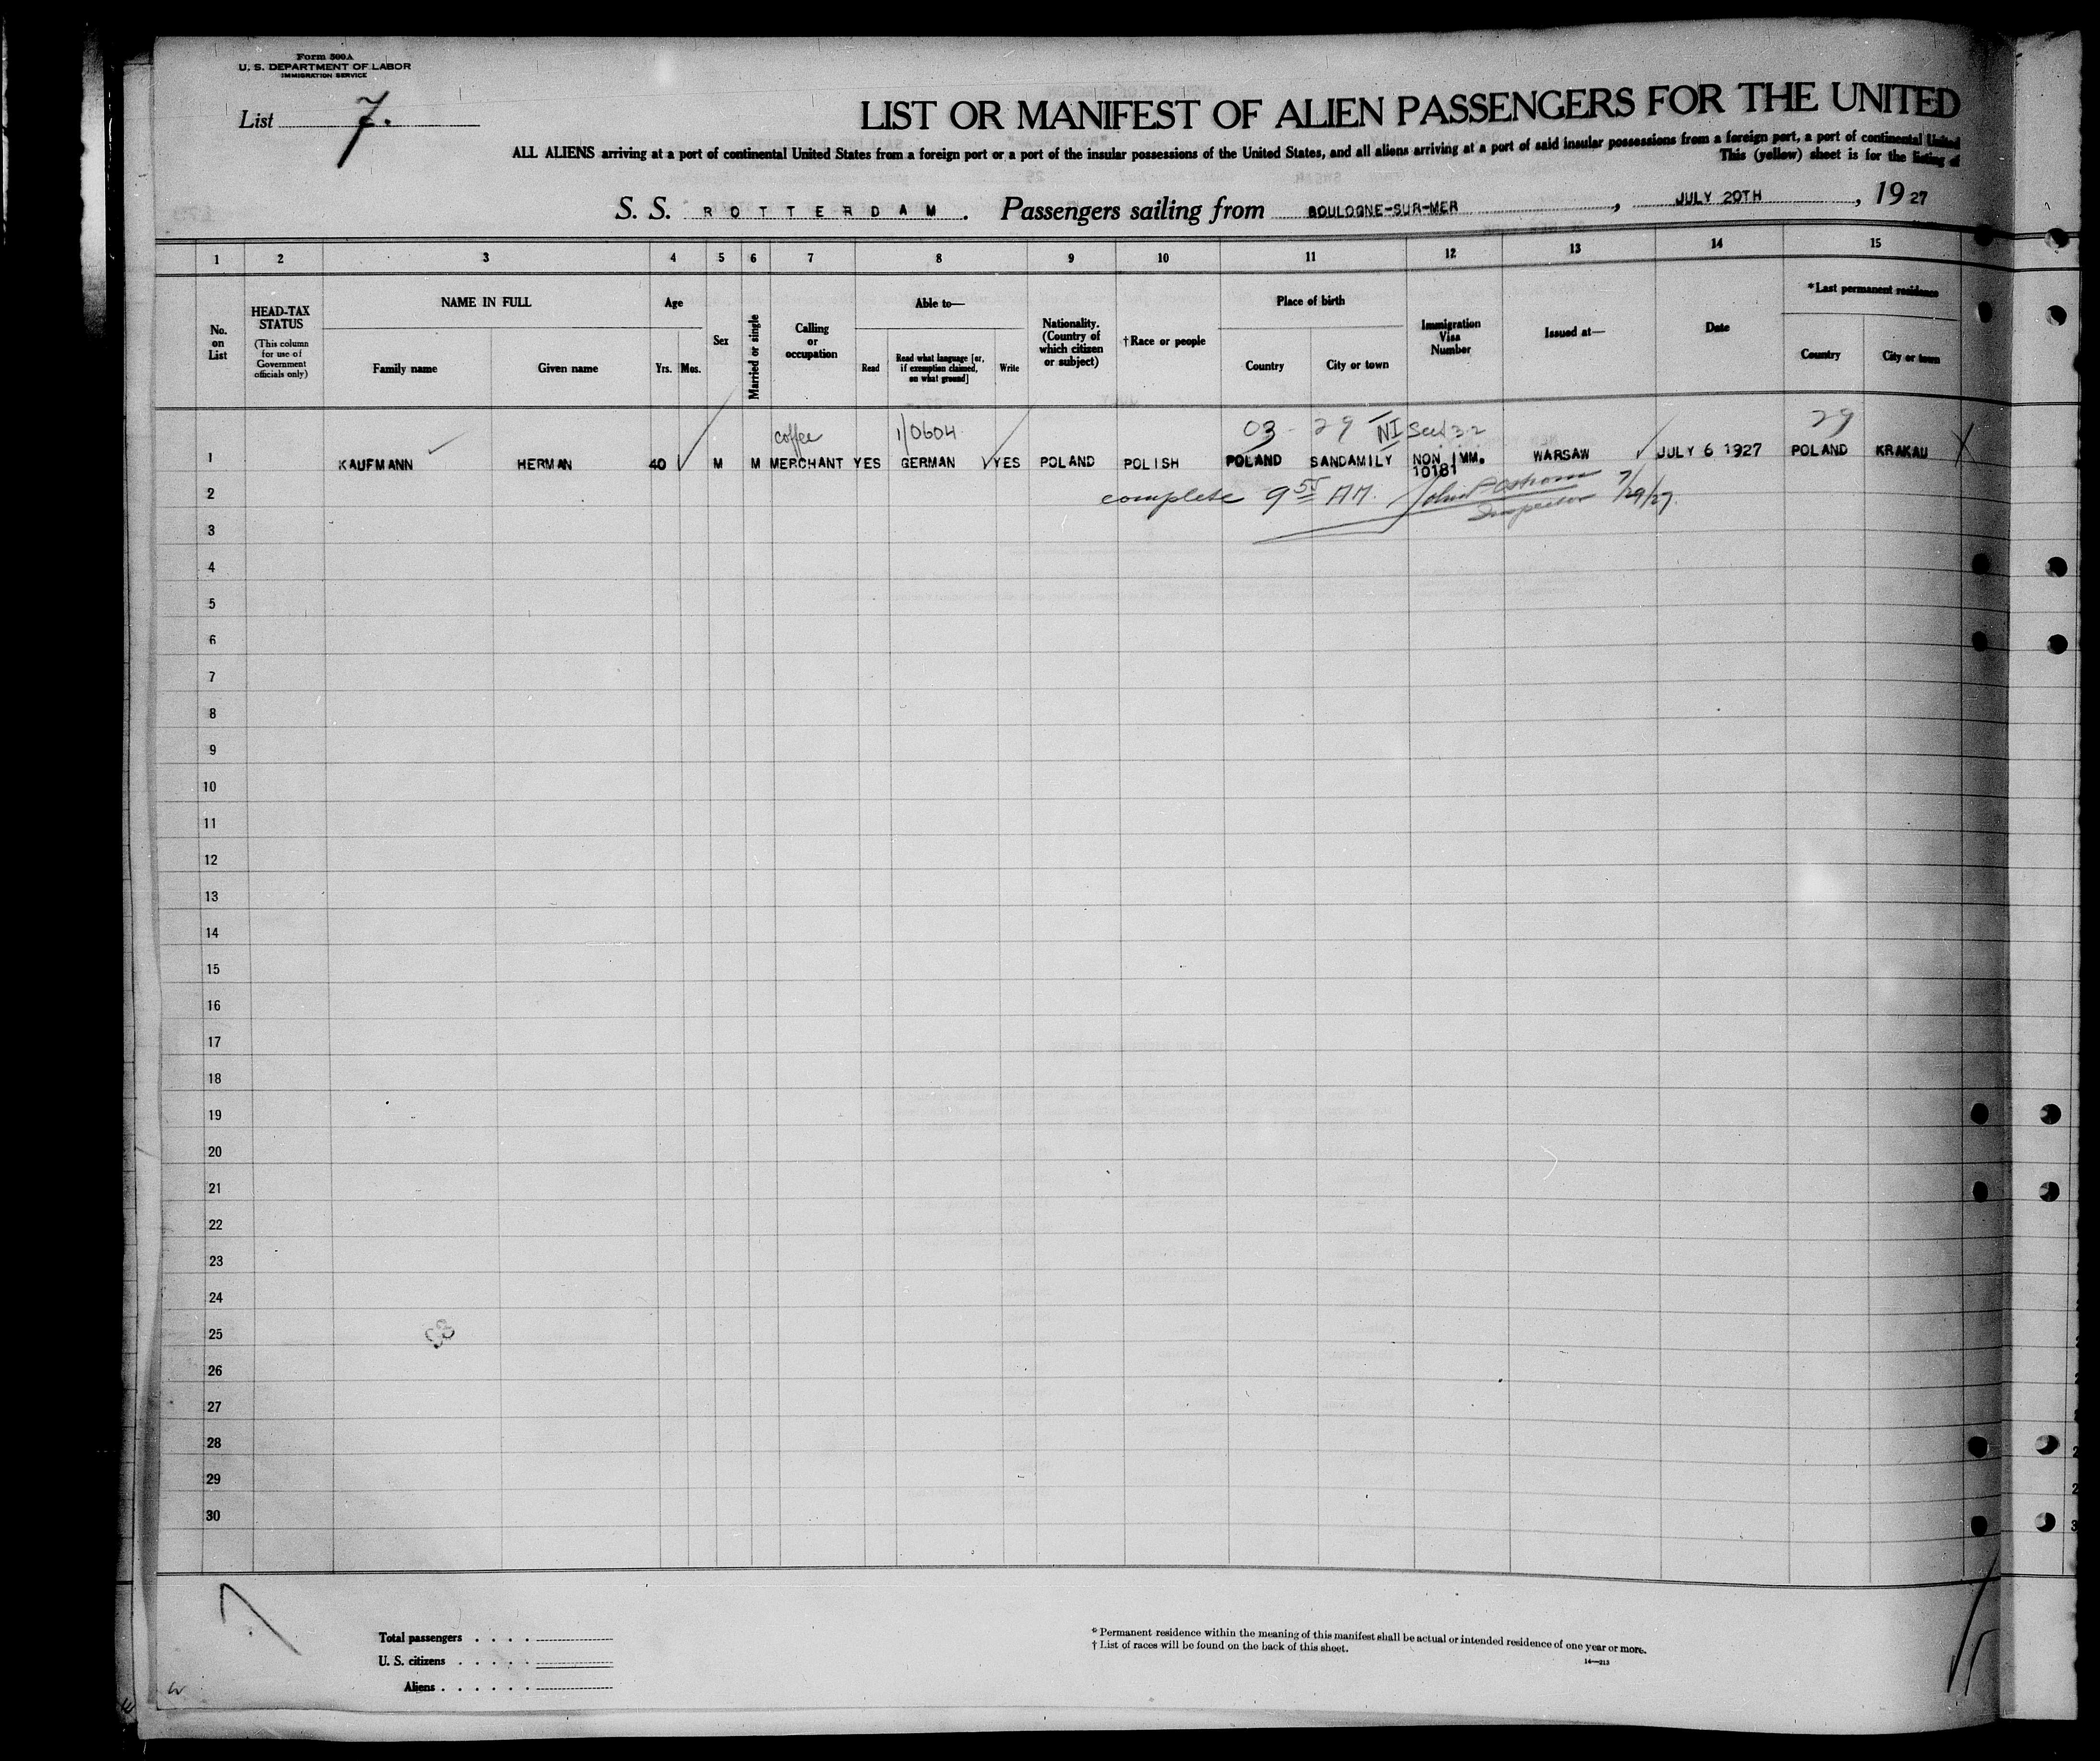 Form 500A
U. S. DEPARTMENT OF LABOR
IMMIGRATION SERVICE
List 7.
LIST OR MANIFEST OF ALIEN PASSENGERS FOR THE UNITED
ALL ALIENS arriving at a port of continental United States from a foreign port or a port of the insular possessions of the United States, and all aliens arriving at a port of said insular possessions from a foreign port, a port of continental United
This (yellow) sheet is for the listing of
S. S. ROTTERDAM. Passengers sailing from BOULOGNE-SUR-MER, JULY 20TH, 1927
1 2 3 4 5 6 7 8 9 10 11 12 13 14 15
No. on List
HEAD-TAX STATUS
(This column for use of Government officials only)
NAME IN FULL
Family name
Given name
Age
Yrs.
Mos.
Sex
Married or single
Calling or occupation
Able to—
Read
Read what language [or, if exemption claimed, on what ground]
Write
Nationality. (Country of which citizen or subject)
†Race or people
Place of birth
Country
City or town
Immigration Visa Number
Issued at—
Date
*Last permanent residence
Country
City or town
coffee 1/0604 03 - 29 NI 29
1 KAUFMANN HERMAN 40 M M MERCHANT YES GERMAN YES POLAND POLISH POLAND SANDAMILY NON IMM. WARSAW JULY 6 1927 POLAND KRAKAU X
10181
2 complete 9 55 AM. John Inspector 7/29/27.
3
4
5
6
7
8
9
10
11
12
13
14
15
16
17
18
19
20
21
22
23
24
25
26
27
28
29
30
Total passengers . . . .
U. S. citizens . . . . .
Aliens . . . . . .
* Permanent residence within the meaning of this manifest shall be actual or intended residence of one year or more.
† List of races will be found on the back of this sheet.
14—213